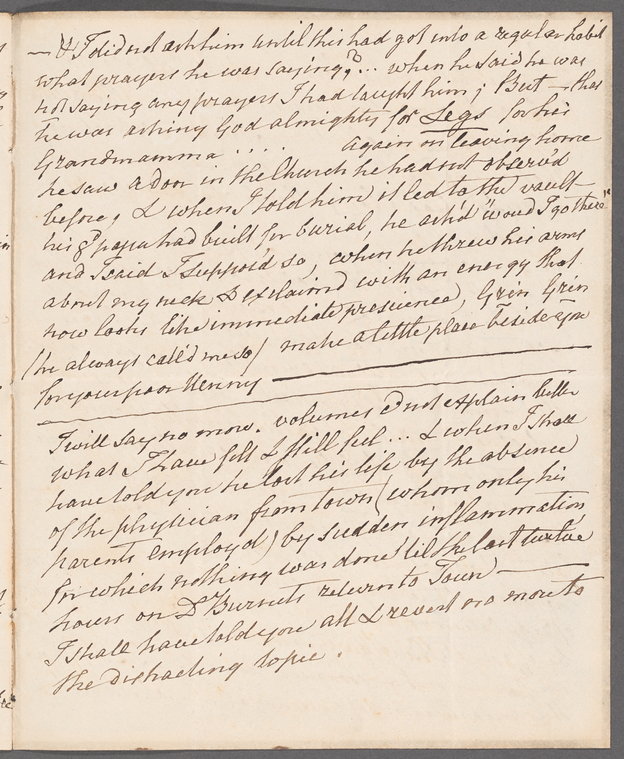 — & I did not ask him until this had got into a regular habit
what prayers he was saying? ... when he said he was
not saying any prayers I had taught him; But – that
he was asking God almighty for Legs for his
Grandmamma ..... again on leaving home
he saw a door in the Church he had not observd
before, & when I told him it led to the vault
his gdpapa had built for burial, he ask'd "woud I go there"
and I said I suppos'd so, when he threw his arms
about my neck & exclaim'd with an energy that
now looks like immediate prescience, Grin Grin
(he always call'd me so) make a little place beside you
for your poor Henny ———
I will say no more. volumes cd not explain better
what I have felt & still feel ... & when I shall
have told you he lost his life by the absence
of the physician from town (whom only his
parents employd) by sudden inflammation
for which nothing was done 'til the last twelve
hours on Dr Burnets return to Town —
I shall have told you all & revert no more to
the distracting topic.